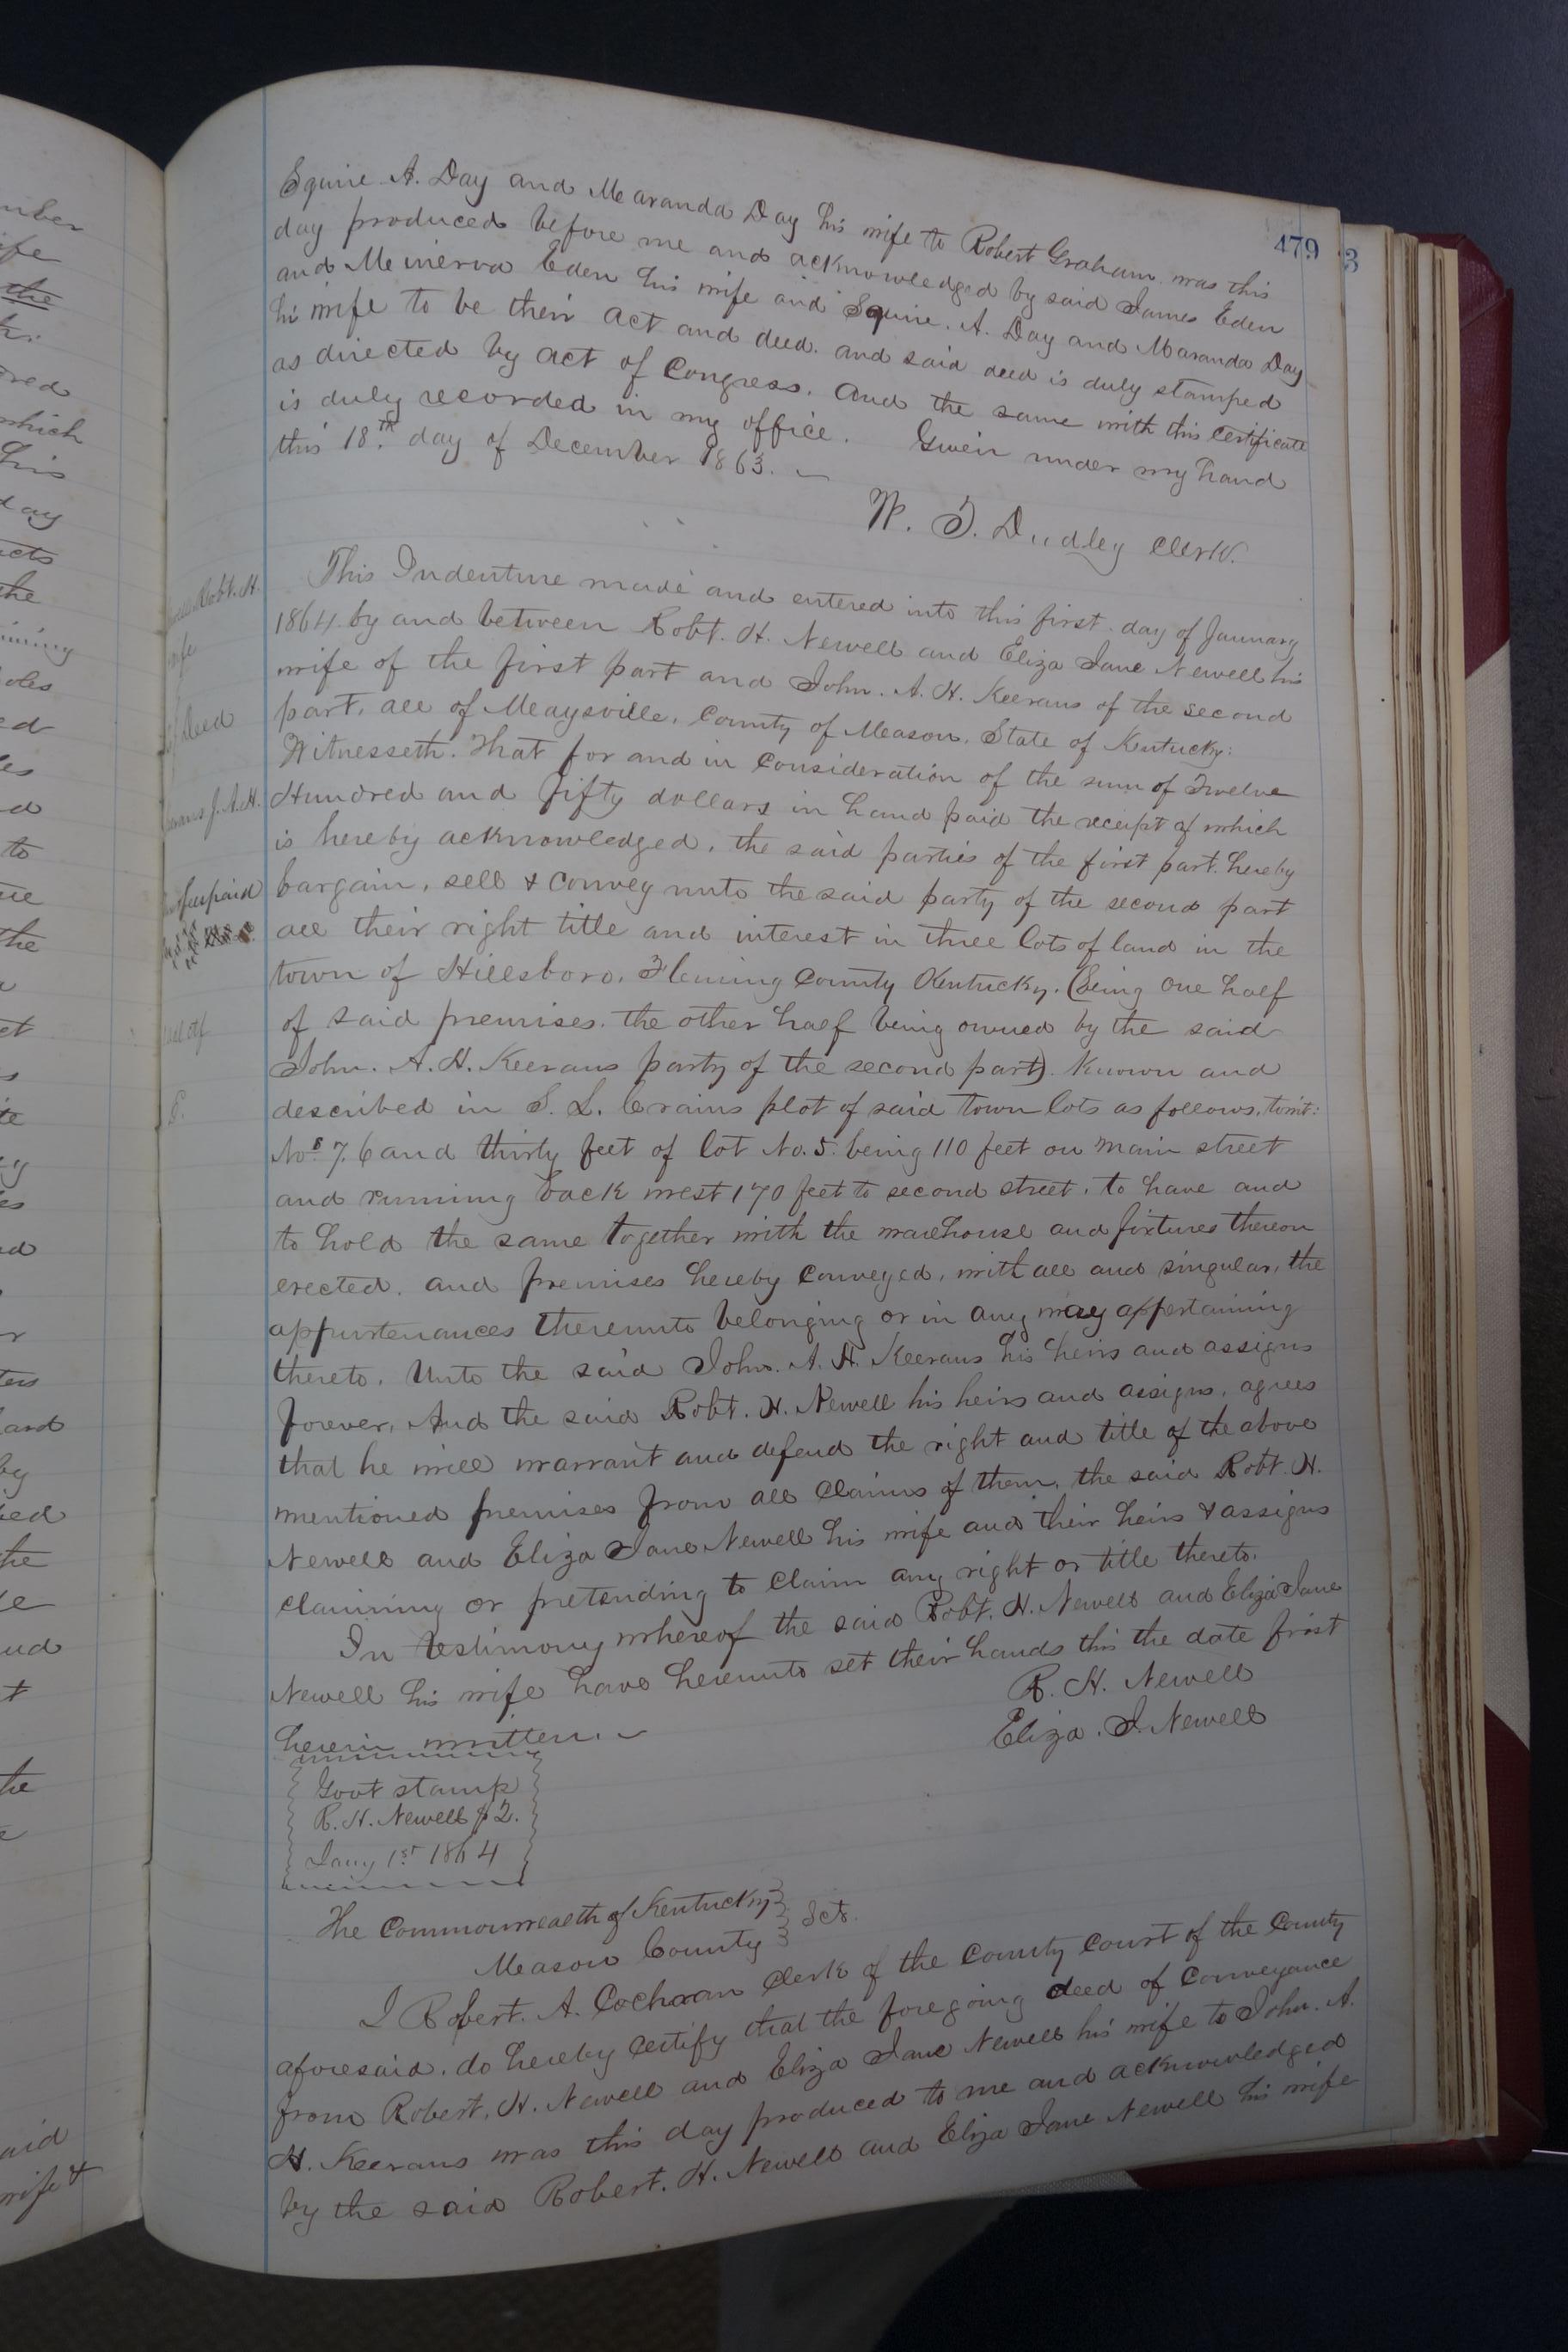 479
Squire A. Day and Maranda Day his wife to Robert Graham was this
day produced before me and acknowledged by said James Eden
and Minerva Eden his wife and Squire. A. Day and Maranda Day
his wife to be their act and deed. and said deed is duly stamped
as directed by act of Congress. and the same with this certificate
is duly recorded in my office. Given under my hand
this 18.th day of December 1863.
W. T. Dudley Clerk.
This Indenture made and entered into this first day of January
1864. by and between Robt. H. Newell and Eliza Jane Newell his
wife of the first part and John. A. H. Keerans of the second
part, all of Maysville, County of Mason, State of Kentucky:
Witnesseth. That for and in consideration of the sum of Twelve
Hundred and fifty dollars in hand paid the receipt of which
is hereby acknowledged, the said parties of the first part hereby
bargain, sell & convey unto the said party of the second part
all their right title and interest in three lots of land in the
town of Hillsboro, Fleming County Kentucky. (being one half
of said premises. the other half being owned by the said
John. A. H. Keerans party of the second part). Known and
described in S. L. Crains plot of said town lots as follows, towit:
Nos 7. 6 and thirty feet of lot No. 5. being 110 feet on main street
and running back west 170 feet to second street, to have and
to hold the same together with the warehouse and fixtures thereon
erected. and premises hereby conveyed, with all and singular, the
appurtenances thereunto belonging or in any way appertaining
thereto. Unto the said John. A. H. Keerans his heirs and assigns
forever, And the said Robt. H. Newell his heirs and assigns, agrees
that he will warrant and defend the right and title of the above
mentioned premises from all claims of them, the said Robt. H.
Newell and Eliza Jane Newell his wife and their heirs & assigns
claiming or pretending to claim any right or title thereto.
In testimony whereof the said Robt. H. Newell and Eliza Jane
Newell his wife have hereunto set their hands this the date first
herein written.
R. H. Newell
Eliza. J. Newell
Govt stamp
R. H. Newell $2.
Jany 1st 1864
The Commonwealth of Kentucky
Mason County Sct.
I Robert. A. Cochran Clerk of the County Court of the County
aforesaid, do hereby certify that the foregoing deed of conveyance
from Robert. H. Newell and Eliza Jane Newell his wife to John. A.
H. Keerans was this day produced to me and acknowledged
by the said Robert. H. Newell and Eliza Jane Newell his wife